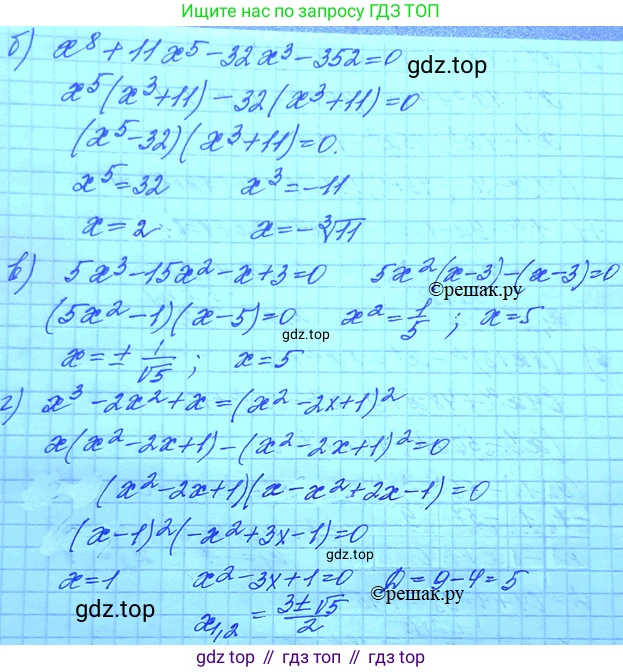 Ищите нас по запросу ГДЗ ТОП
б) x⁸ + 11x⁵ - 32x³ - 352 = 0
gdz.top
x⁵(x³+11) - 32(x³+11) = 0
(x⁵-32)(x³+11) = 0.
x⁵ = 32 x³ = -11
x = 2 x = -∛11
в) 5x³ - 15x² - x + 3 = 0 5x²(x-3) - (x-3) = 0
©решак.ру
(5x² - 1)(x - 5) = 0 x² = 1/5 ; x = 5
gdz.top
x = ± 1/√5 ; x = 5
г) x³ - 2x² + x = (x² - 2x + 1)²
x(x² - 2x + 1) - (x² - 2x + 1)² = 0
(x² - 2x + 1)(x - x² + 2x - 1) = 0
(x - 1)²(-x² + 3x - 1) = 0
gdz.top
x = 1 x² - 3x + 1 = 0 D = 9 - 4 = 5
©решак.ру
gdz.top
x₁,₂ = (3±√5)/2
gdz top // гдз топ // gdz.top